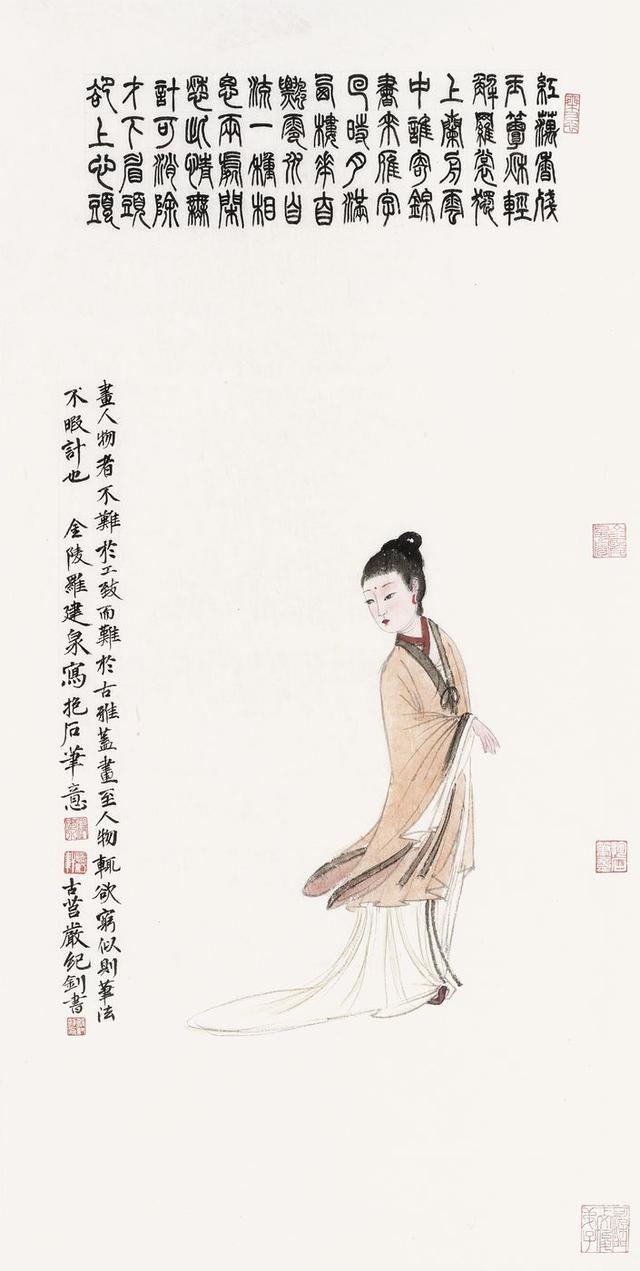 紅藕香殘
玉簟秋輕
解羅裳獨
上蘭舟雲
中誰寄錦
書來雁字
回時月滿
西樓花自
飄零水自
流一種相
思兩處閑
愁此情無
計可消除
才下眉頭
卻上心頭
畫人物者不難於工致而難於古雅蓋畫至人物輒欲窮似則筆法
不暇計也 金陵羅建泉寫抱石筆意
古莒嚴紀釗書